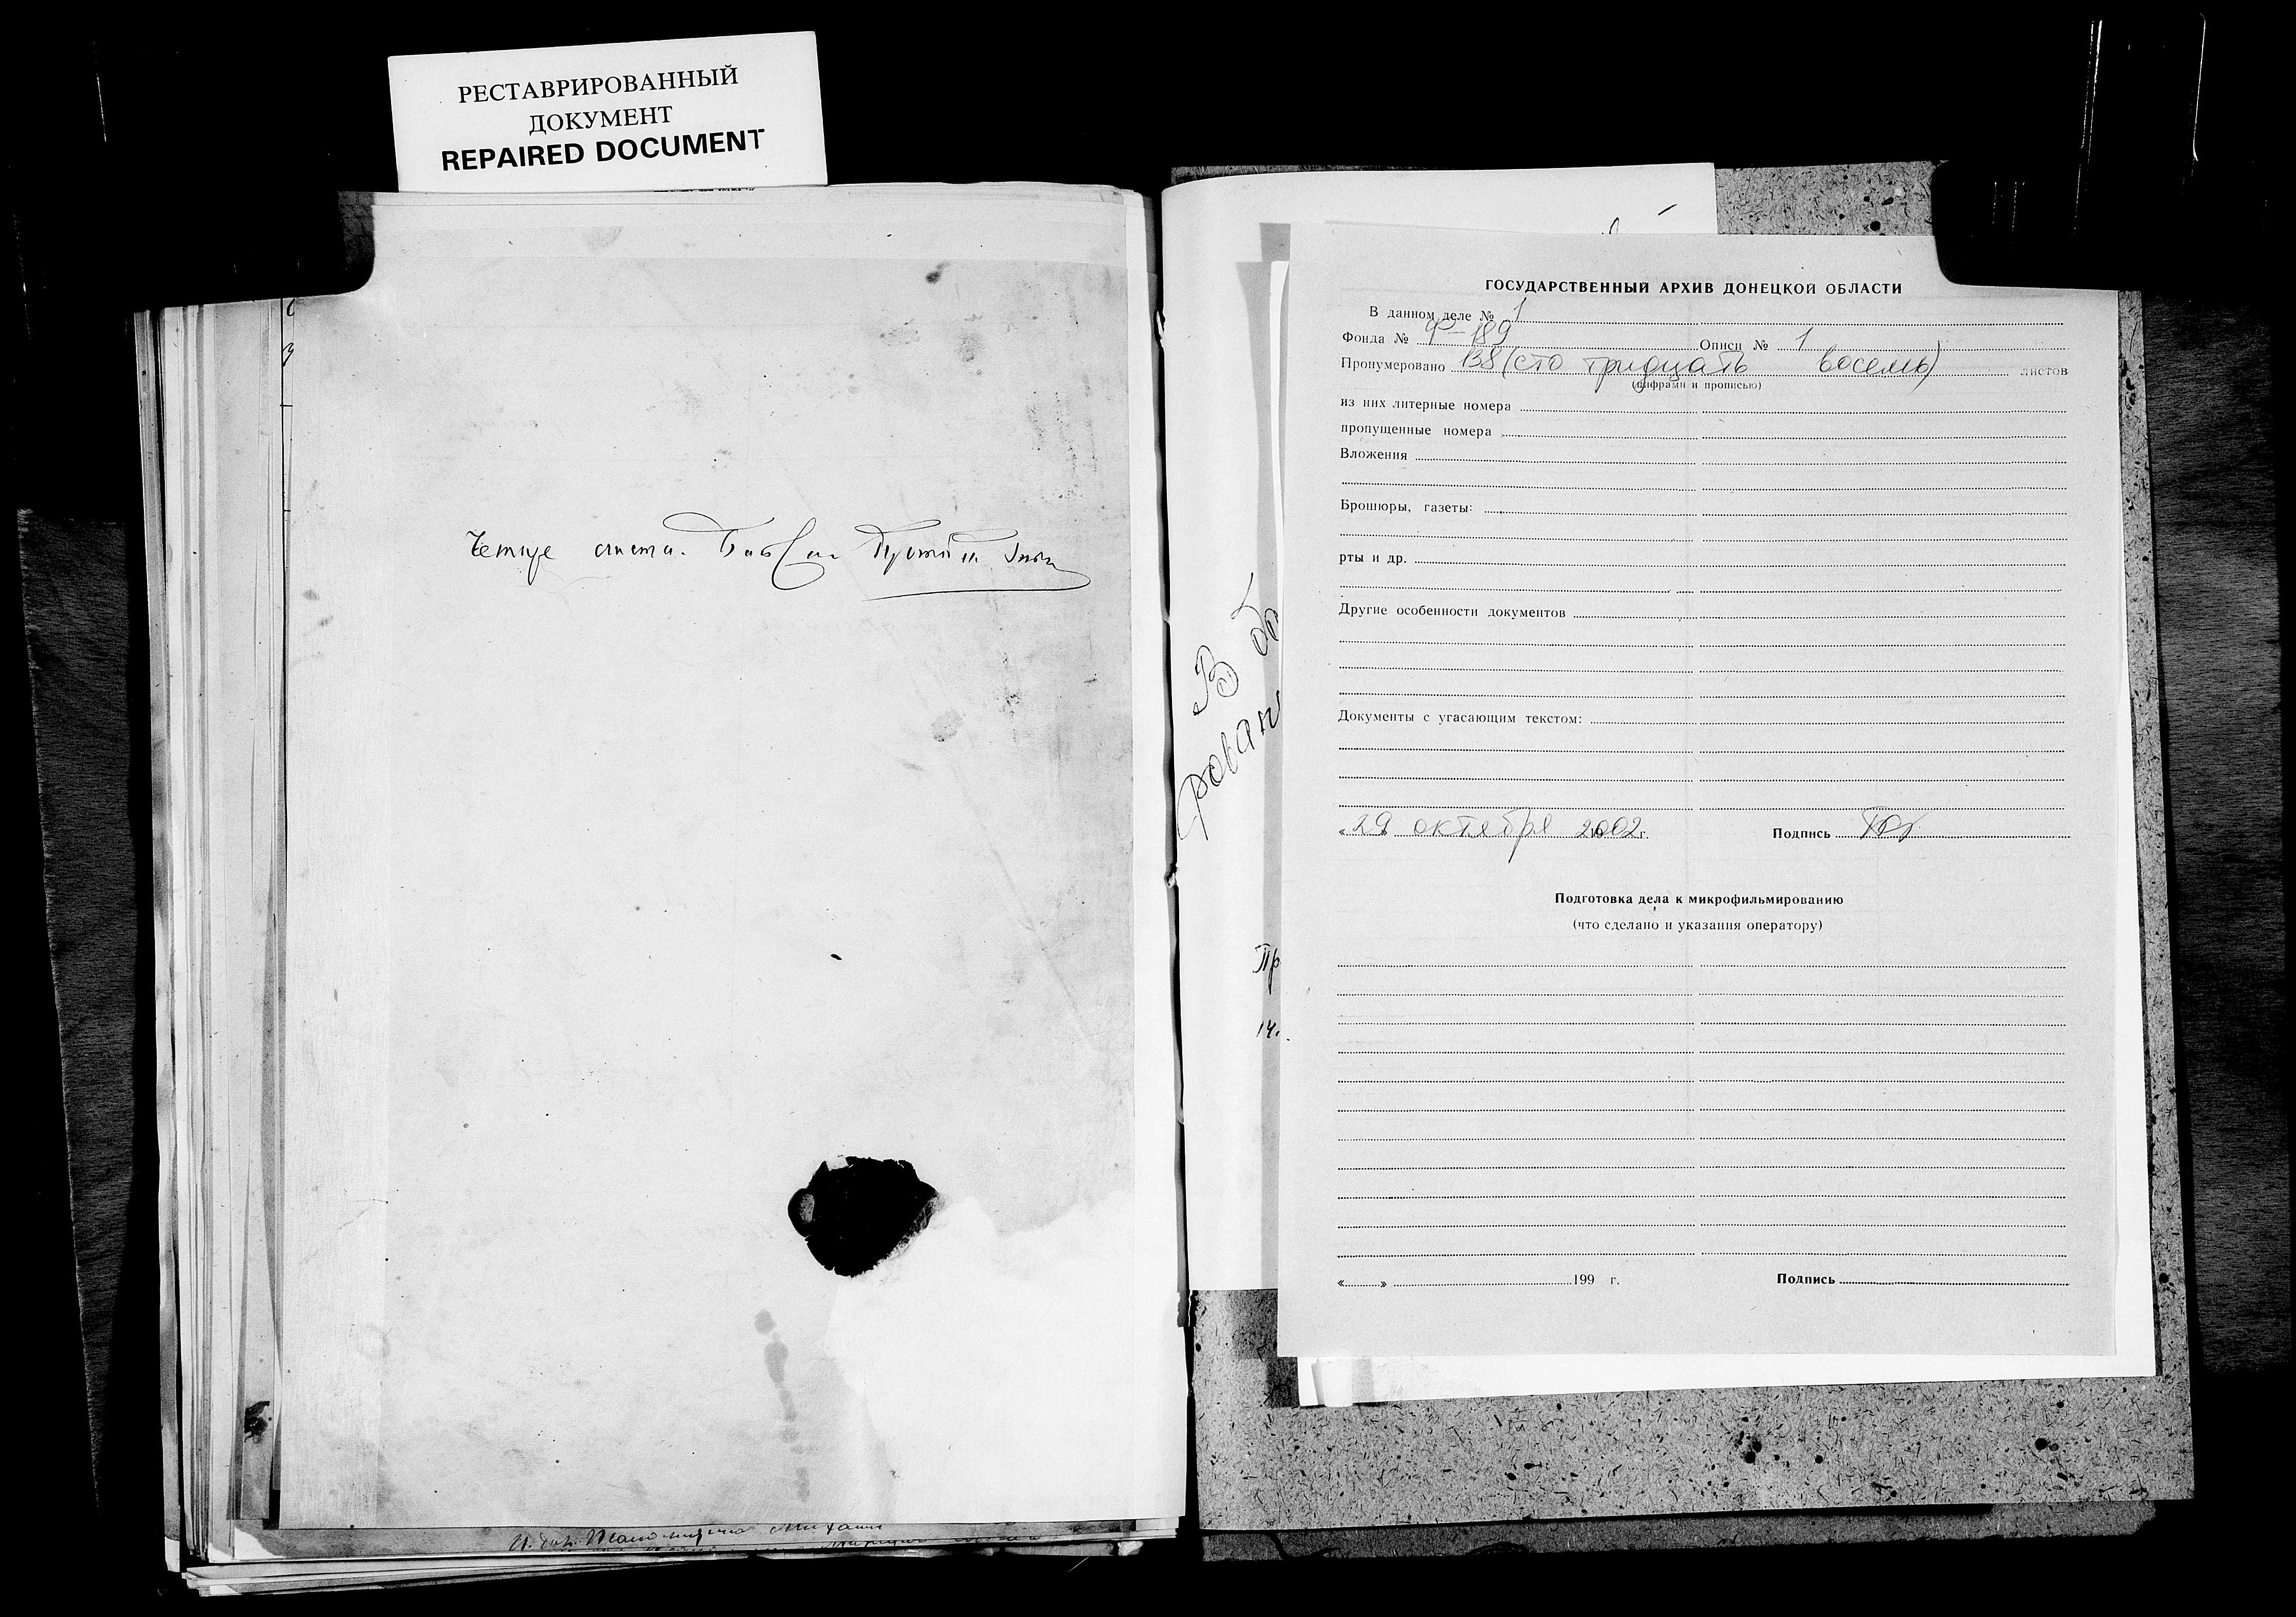 РЕСТАВРИРОВАННЫЙ
ДОКУМЕНТ
REPAIRED DOCUMENT
ГОСУДАРСТВЕННЫЙ АРХИВ ДОНЕЦКОЙ ОБЛАСТИ
В данном деле № 1
Фонда № Ф-189 Описи № 1
Пронумеровано 138 (сто тридцать восемь) листов
(цифрами и прописью)
из них литерные номера
пропущенные номера
Вложения
Брошюры, газеты:
рты и др.
Другие особенности документов
Документы с угасающим текстом:
«29 октября 2002 г. Подпись
Подготовка дела к микрофильмированию
(что сделано и указания оператору)
« » 199 г. Подпись
В
рован
Пр
14.